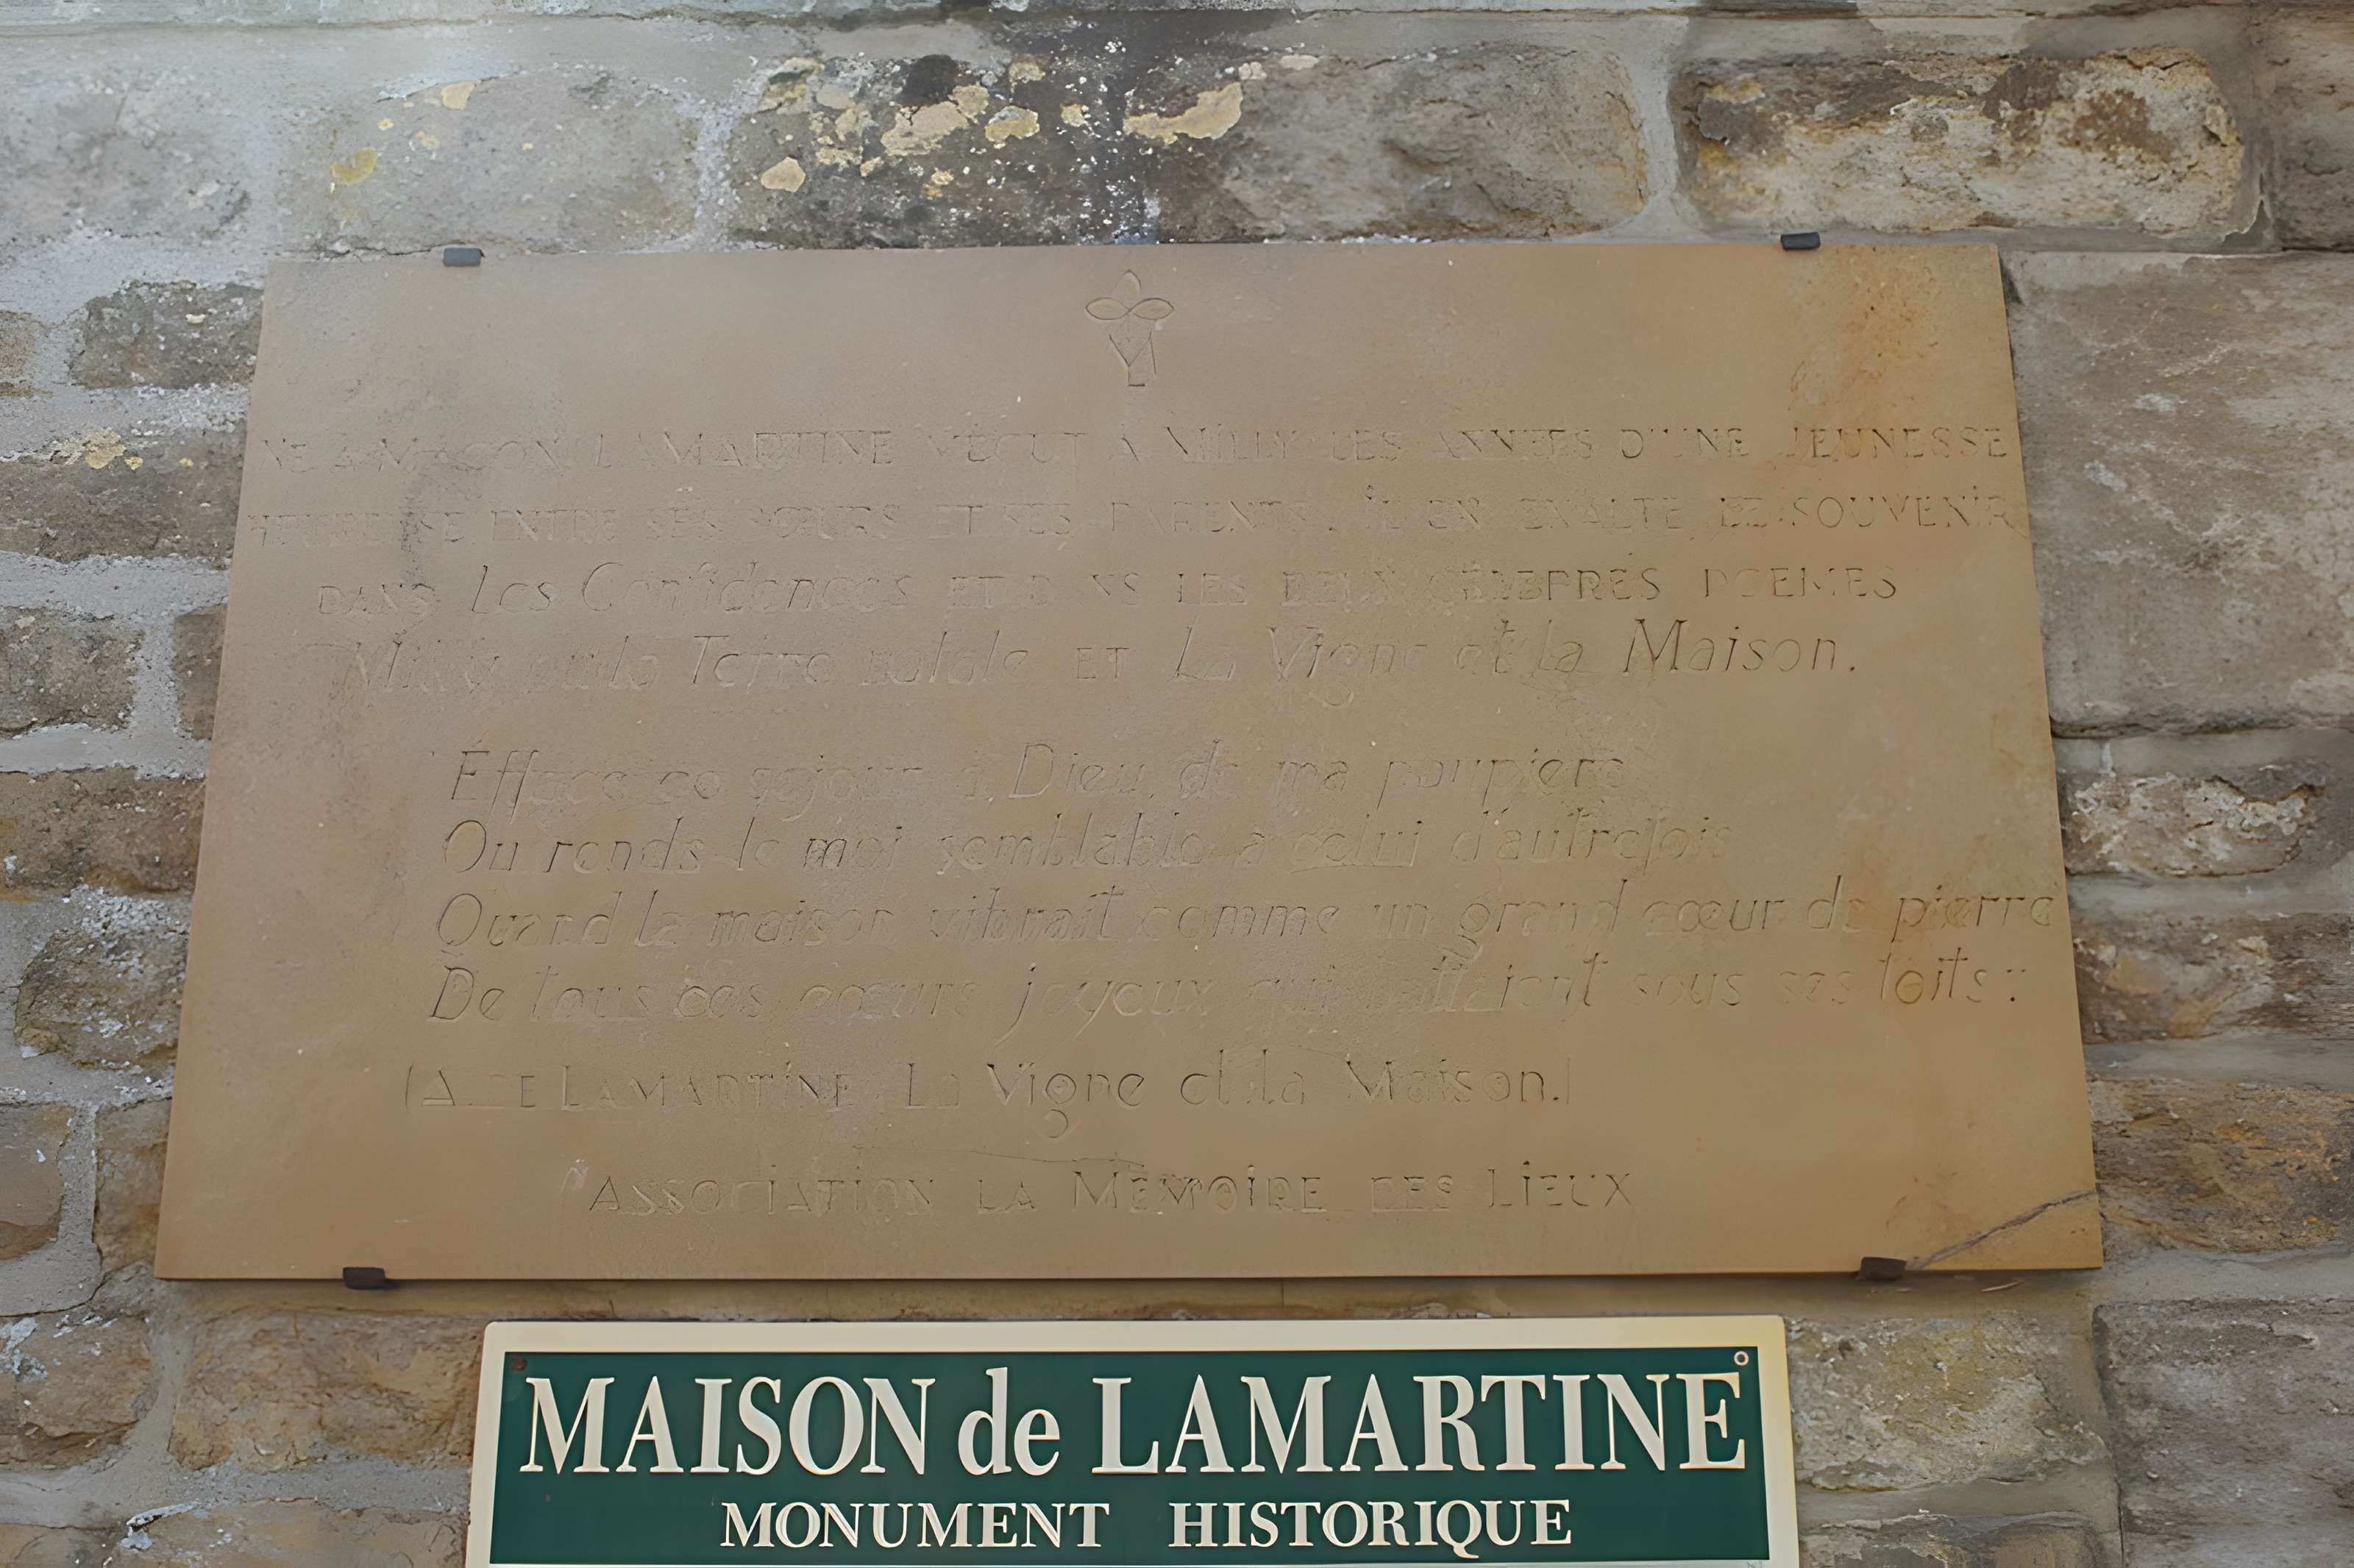 NÉ A MACON, LAMARTINE VÉCUT À MILLY LES ANNÉES D'UNE JEUNESSE
HEUREUSE ENTRE SES SŒURS ET SES PARENTS. IL EN EXALTE LE SOUVENIR
DANS Les Confidences ET DANS LES DEUX CÉLÈBRES POÈMES
Milly ou la Terre natale ET La Vigne et la Maison.
Efface ce séjour, ô Dieu, de ma paupière
Ou rends le moi semblable à celui d'autrefois
Quand la maison vibrait comme un grand cœur de pierre
De tous ces cœurs joyeux qui battaient sous ses toits"
(A. DE LAMARTINE, La Vigne et la Maison.)
ASSOCIATION LA MÉMOIRE DES LIEUX
MAISON de LAMARTINE
MONUMENT HISTORIQUE